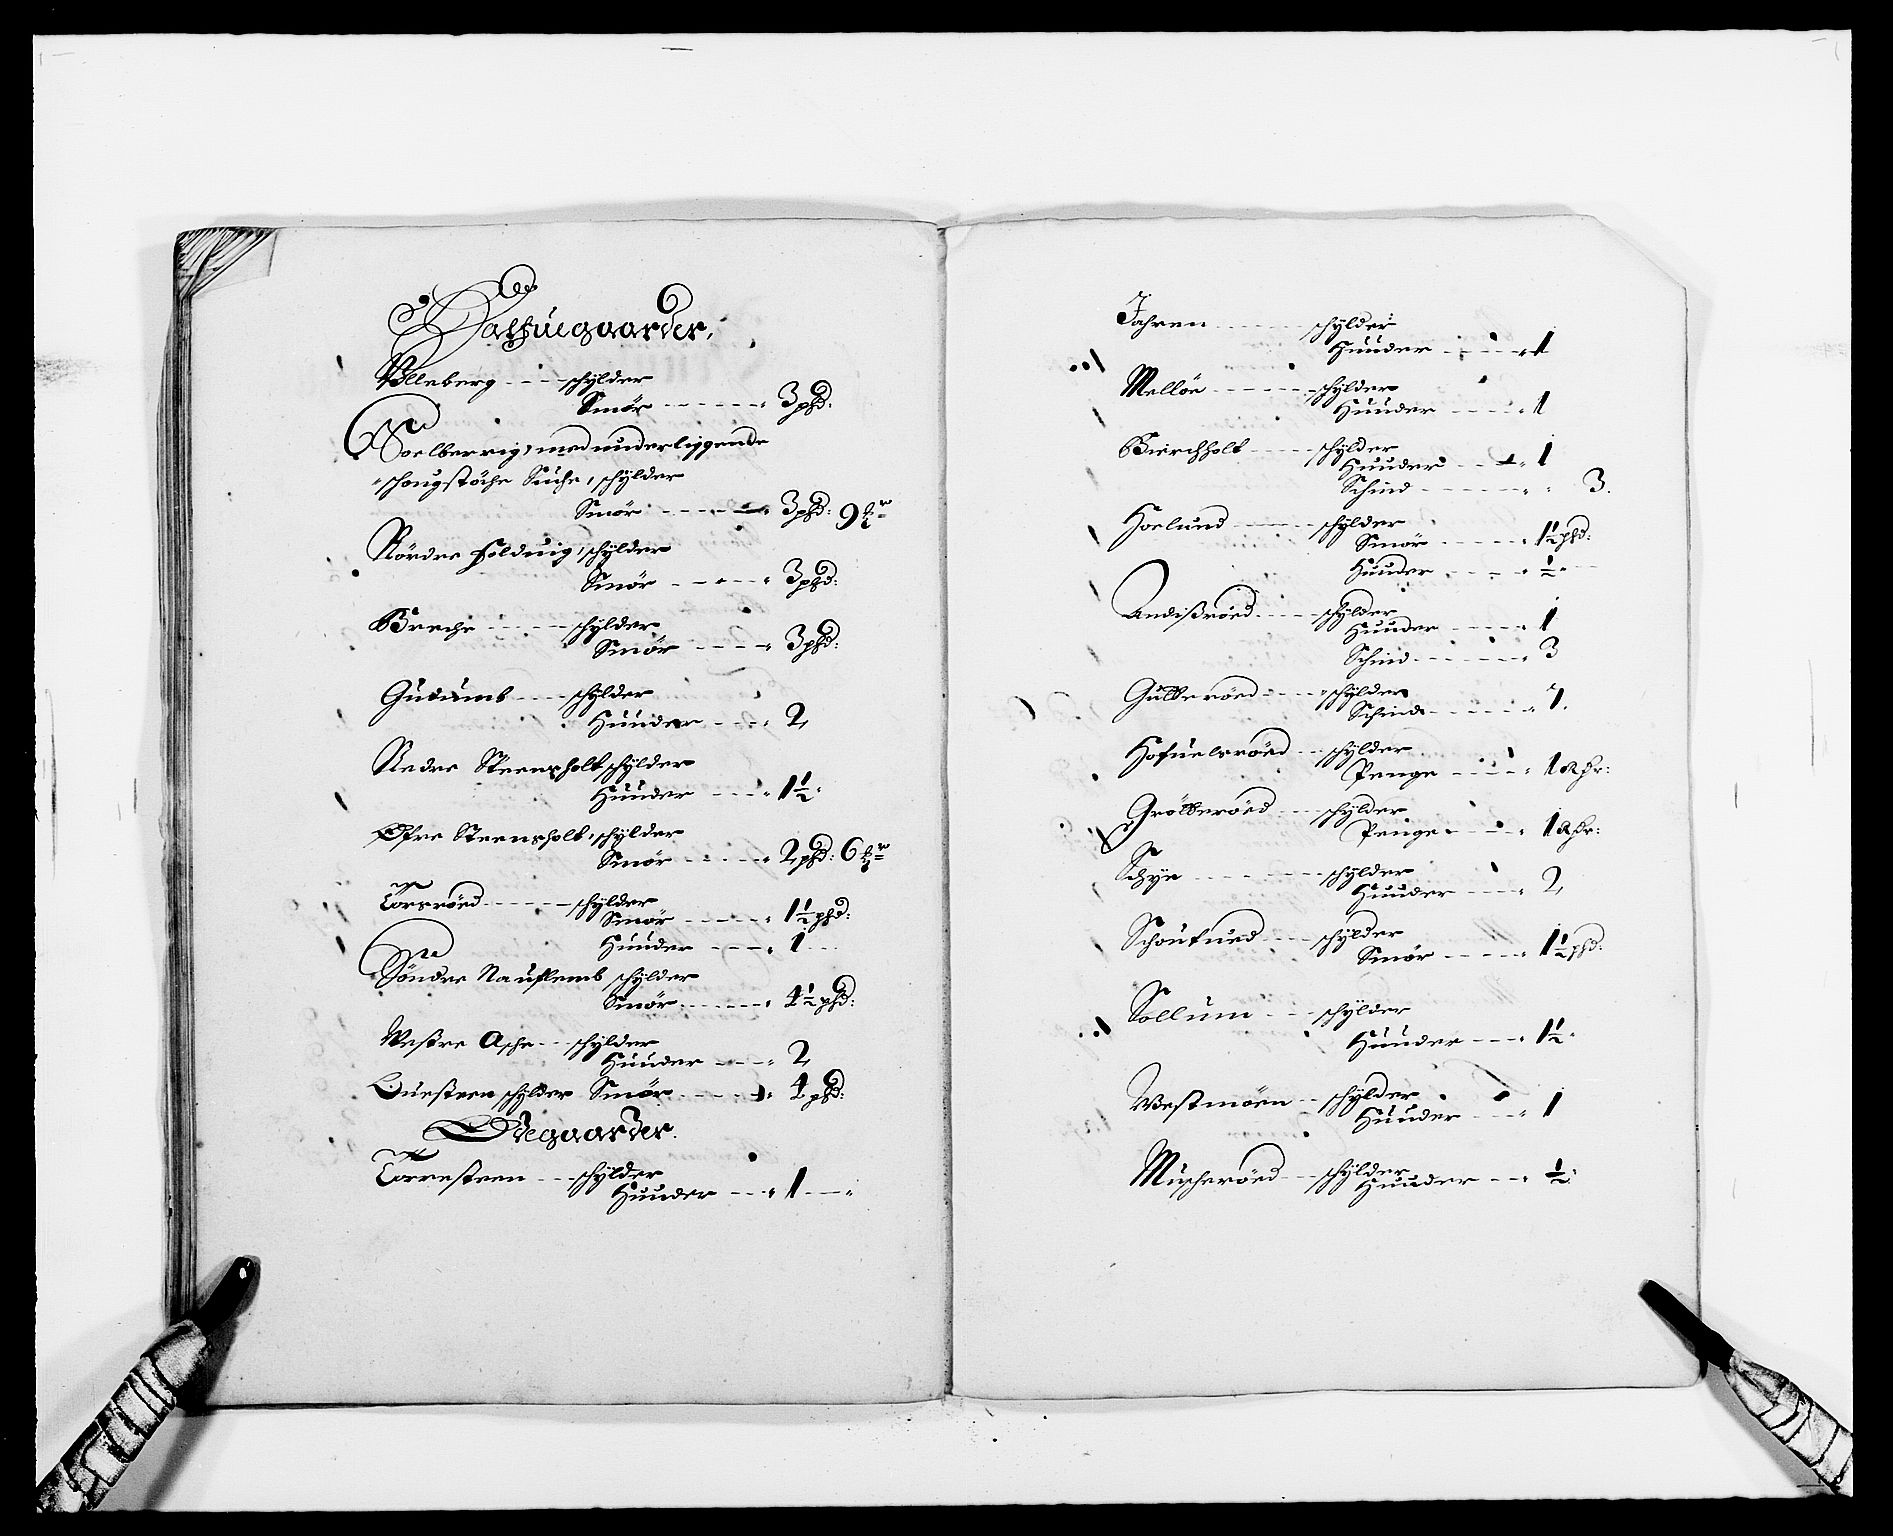 Halfuegaarder,
Ulleberg - - - schylder
Smør - - - - - - 3 phd:
Soelberrig, med underliggende
schougstöche Suche, schylder
Smør - - - - - - 3 phd: 9
Nördre Foldvig, schylder
Smør - - - - - 3 phd:
Breche - - - - - schylder
Smør - - - - - 3 phd:
Gusumb - - - schylder
Huuder - - - 2
Nedre Steensholt schylder
Huuder - - - 1½
Ofre Steensholt, schylder
Smør - - - - - 2 phd: 6
Torsröed - - - - - schylder
Smør - - - - - 1½ phd:
Huuder - - - - 1
Söndre Nauflemb schylder
Smør - - - - - 4½ phd:
Westre Aske - - schylder
Huuder - - - 2
Questeen schylder Smør - - - - - 4 phd:
Ödegaarder.
Torresteen - - - schylder
Huuder - - - 1
Jahren - - - - - schylder
Huuder - - - - 1
Mellöe - - - - - - schylder
Huuder - - - - 1
Bierchholt - - - - schylder
Huuder - - - - 1
Schind - - - - - - 3.
Hoelund - - - - schylder
Smør - - - - - 1½ phd:
Huuder - - - - ½
Andißröed - - - schylder
Huuder - - - - 1
Schind - - - - - - 3
Gulleröed - - - - schylder
Schind - - - - - 1.
Hofuelsröed - - schylder
Penge - - - - 1 Rdr:
Grölleröed - - - schylder
Penge - - - - 1 Rdr:
Schye - - - - - - - schylder
Huuder - - - 2
Schoufued - - - schylder
Smør - - - - - 1½ phd:
Sollum - - - schylder
Huuder - - - 1½
Westmöen - - schylder
Huuder - - - 1
Muscheröed - - schylder
Huuder - - ½